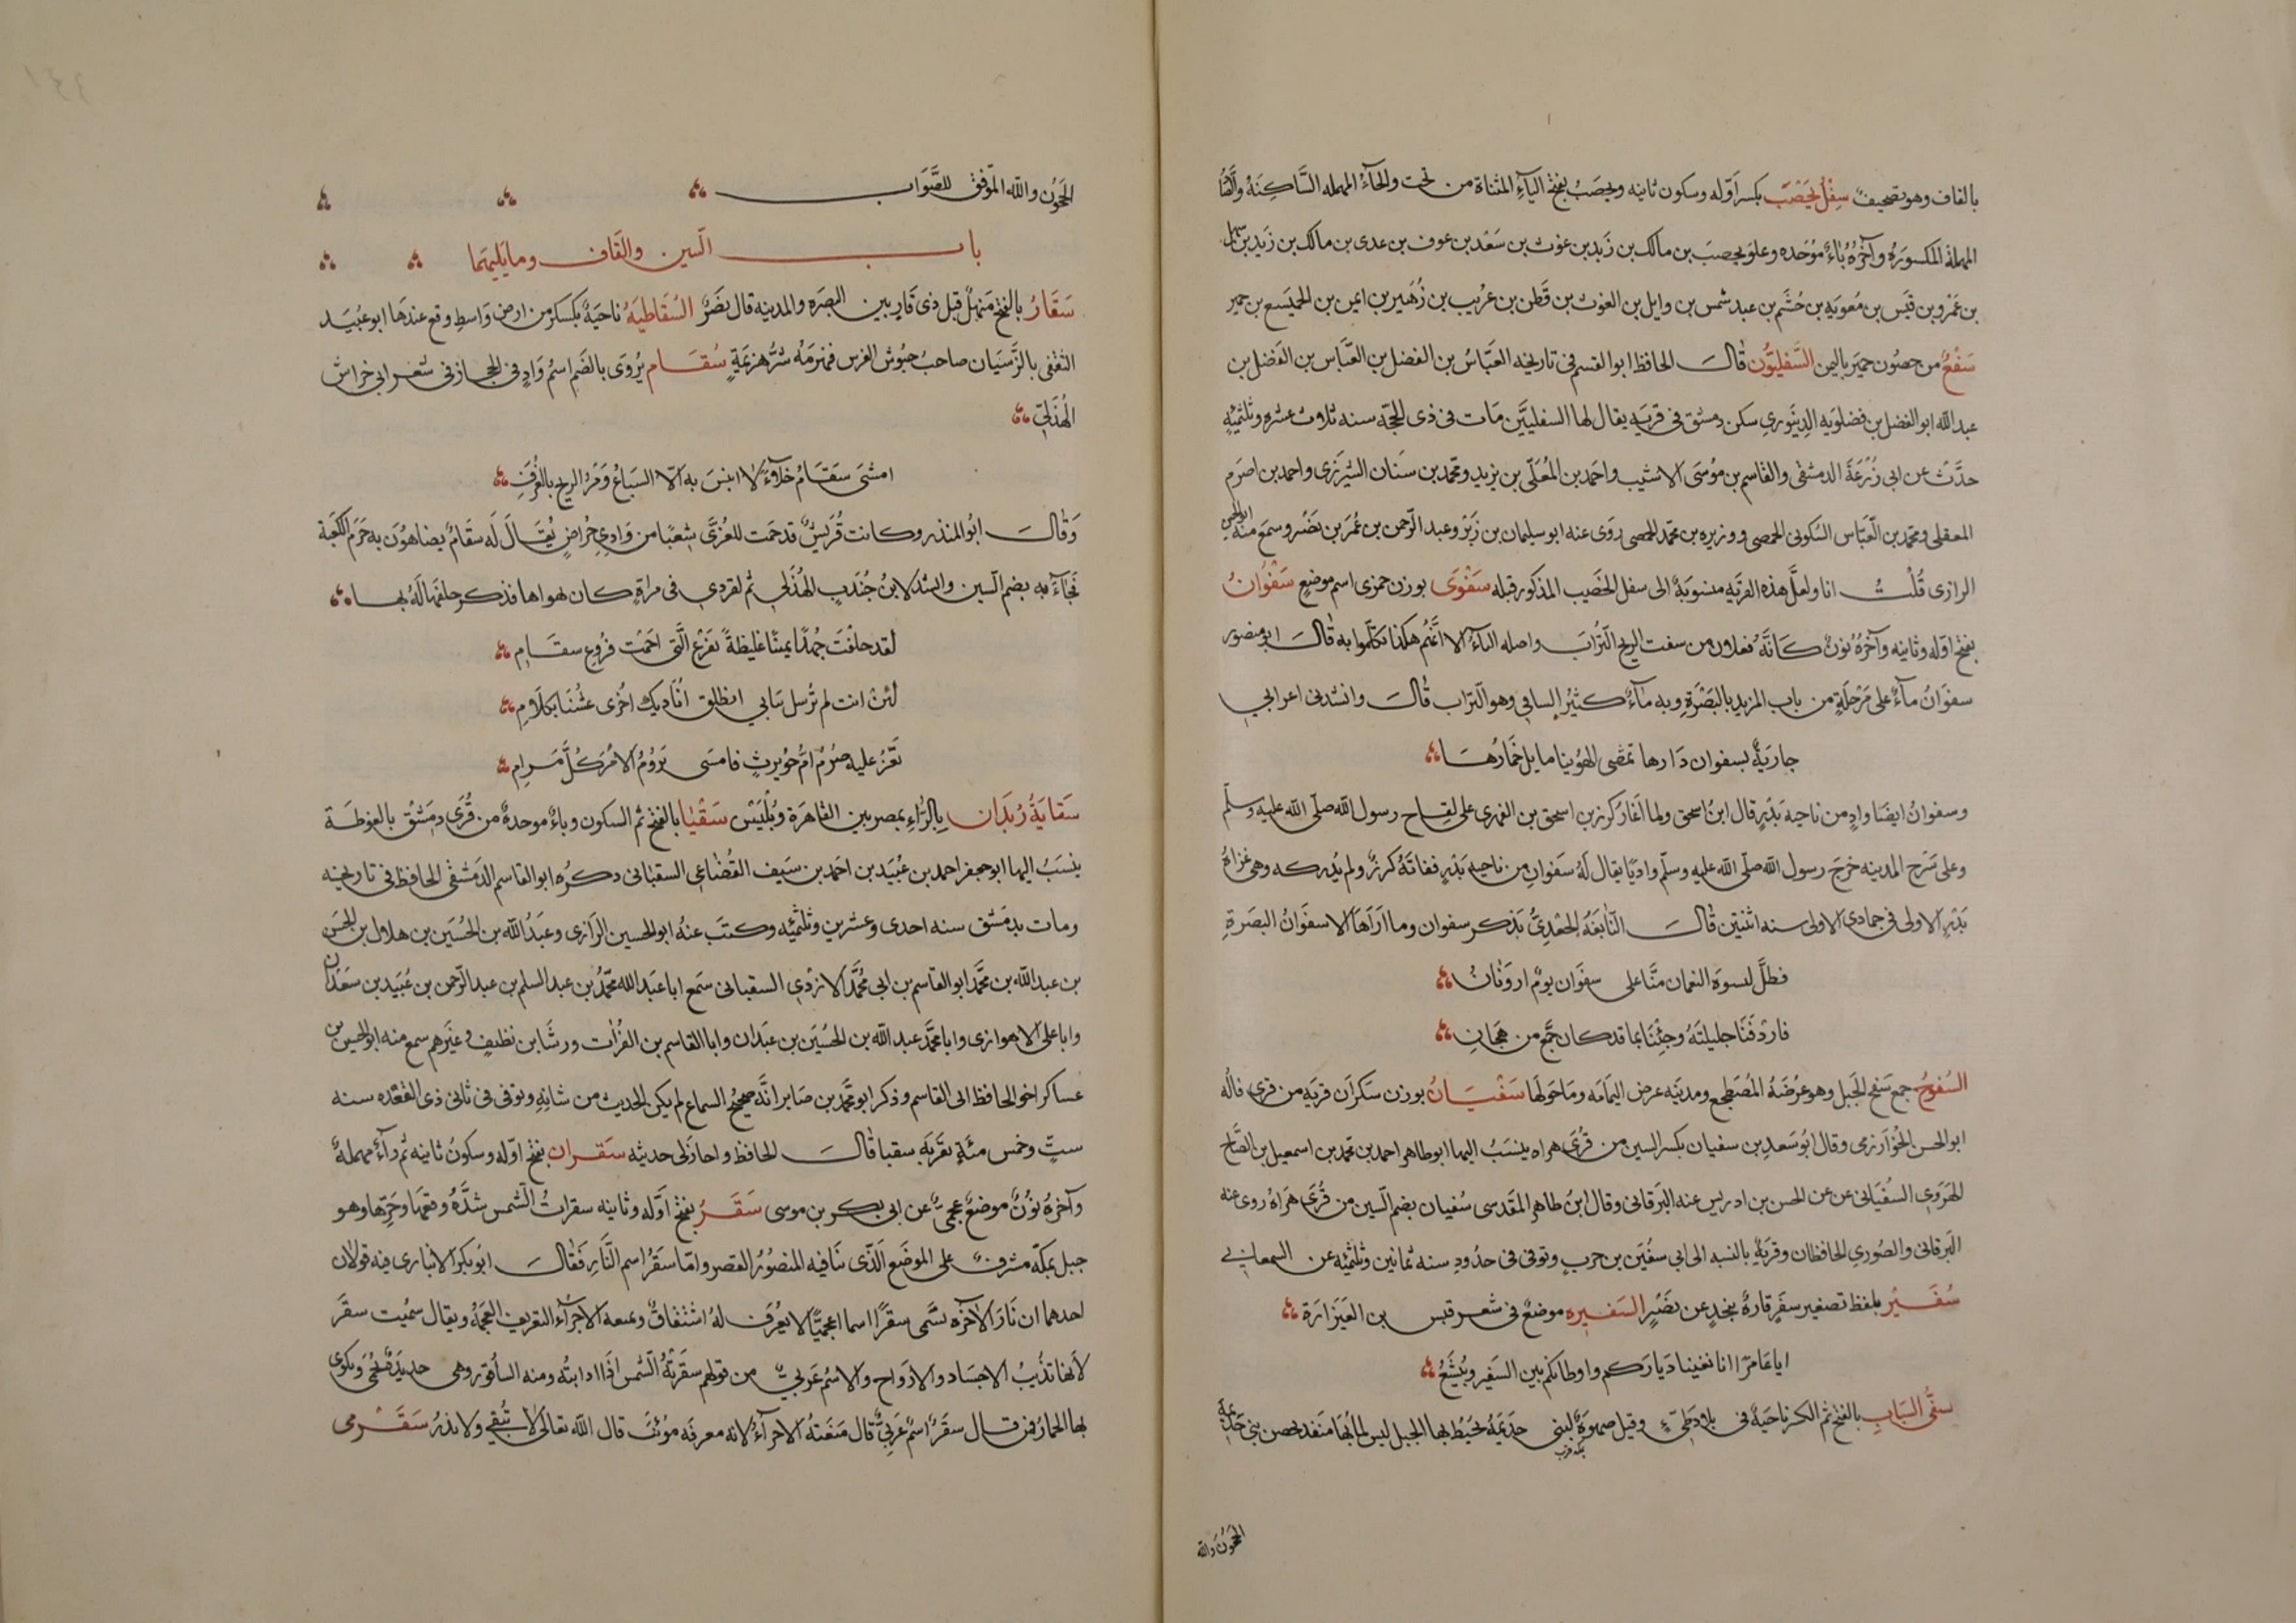 بالقاف وهو تصحيف سِفْلُ يَحْصَب بكسر اوّله وسكون ثانيه ويحصَبُ بفتح اليآءِ المثناة من تحت والحآءُ المهمله السَّاكِنَهُ والصَّادُ
المهملهُ المكسورَهُ وآخرُهُ بآءٌ مُوَحّده وعلو يحصبَ بن مالك بن زَيد بن غوث بن سَعْد بن عوف بن عدى بن مالك بن زَيد بن سهل
بن عَمْرو بن قيَس بن مُعويَه بن جُشَم بن عبد شمس بن وايل بن الغوث بن قَطَن بن عرَيب بن زُهَير بن ايمن بن الهميسَع بن حمير
سَفْعٌ من حصُون حميَر باليمن السَّفليُّون قالَ الحافظ ابو القسم فى تاريخه العَبّاسُ بن الفضل بن العَبَّاس بن الفَضل بن
عبد الله ابو الفضل بن فضلوَيه الدِينَوَرى سكن دمشق فى قريَهٍ يقال لها السفليَّين مَات فى ذى الحجّه سنه ثلاث عشره وثلثمِئهٍ
حدَّثَ عن ابى زُرْعَةَ الدمشقى والقاسم بن مُوسَى الاشيب واحمَد بن المُعَلّى بن يزيد ومحمّد بن سَنان الشيرَزى واحمد بن اصرَم
المعقلى ومحمد بن العَبّاس السكونى الحمصى ووزيره بن محمّد الحمصى روَى عنه ابو سليمان بن زَبْرٍ وعبد الرّحمن بن عُمَر بن نَصْر وسمعَ منهُ ابو الحسين
الرازى قُلْتُ انا ولعلَّ هذه القريَه منسوبَهٌ الى سفل الخَصيب المذكور قبله سَفْوَى بوزن جمزى اسم موضعٍ سَفَوَانُ
بفتح اوّله وثانيه وآخرُهُ نُونٌ كَانَّهُ فعلان من سفت الريح التّرَابَ واصله اليآءُ الا انَّهُم هكذا تكلّموا به قالَ ابو منصور
سفَوَانُ مآءٌ على مَرْحَلَةٍ من باب المزيد بالبَصْرَةِ وبه مآءٌ كثيُر السافي وهو التّراب قالَ وانشدنى اعرابي
جاريَةٌ بسفوان دَارها تمشى الهُوَينا مايل خمَارُهَا
وسفوانُ ايضًا وادٍ من ناحيهَ بَدْرٍ قال ابنُ اسحق ولما اَغَارَ كرز بن اسحق بن الفهرى على لقِاح رسول الله صلّى الله عليه وسلّم
وعلى سَرْح المدينه خرَجَ رسول الله صلّى الله عليه وسلّم واديًا يقال لَهُ سَفوانِ من ناحيه بَدْرٍ ففاتَهُ كرزٌ ولم يُدركه وهى غزاةُ
بَدْرٍ الاولى فى جمادى الاولى سنه اثنتين قالَ النّابَغَهُ الجَعْدِىُّ يَذكر سفوان وما ارَاهَا الا سفَوَانُ البصَرةِ
فظلَّ لنسوة النعمان منّا على سفَوَان يومٌ اروَنَانُ
فاردَفْنَا حليلتَهُ وجِئْنَا بما قد كان جمَّعَ من هجَانِ
السُفوحُ جمع سَفح الجَبل وهو عُرْضَهُ المُضطَجع ومدينَه عرض اليَمامَه ومَا حَولَها سَفْيَانُ بوزن سَكرَان قريَه من قرى قاله
ابو الحسن الخُوَارزمى وقال ابُو سَعدِ بن سفيان بكسر السين من قُرى هراه ينسَبُ اليها ابو طاهر احمد بن محمّد بن اسمعيل بن الصّباح
الهَرَوىِ السُفيَانى عن عن الحسن بن ادريس عنه البَرقانى وقال ابنُ طاهر المقَدسى سُفيان بضم السّين من قُرى هَرَاهُ روى عنه
البَرقانى والصُورى الحافظان وقريَهٌ بالنسبه الى ابى سفْيَن بن حربٍ وتوفى فى حدُودِ سنه ثمانين وثلثمئه عن السمعاني
سُفَيْرُ بلفظ تصغير سفَرٍ قارةٌ بنجدٍ عن نَصْرٍ السَفيره موضعٌ فى شعر قيس بن العَيَزَارَة
ايا عَامرًا انا بغينا دَيارَكم واوطانكم بين السَفير وبُشَيعُ
سقُ السَّبَابِ بالفتح ثم الكسر ناحيَهٌ فى بلاد طيّءٍ وقيل صهوةٌ لبنى جَذيمَهَ يحُيَط بها الجبل ليس لمائهَا منَفد يحصن بنى جَذيمهَ
الحَوْن والله

الحَوْن والله الموّفق للصَّوَاب
باب السّين والقَاف وما يَليهمَا
سَقَارُ بالفتح مَنهَلٌ قبل ذى قَارٍ بين البصَره والمدينه قال نصَرٌ السُقَاطيَهُ ناحيَهٌ بكسكر من ارض وَاسطٍ وقع عندهَا ابو عُبَيَد
الثقفى بالنَّرْسيَان صاحب جيوُش الفرس فهزمَهُ شرَّ هزيَمَةٍ سُقَام يُروَى بالضم اسمُ وَادٍ فى الحجاز فى شعر ابى خراش
الهُذَلِىِّ
امسَى سَقَامُ خلآءً لا انيسَ به الّا السبَاعُ وَمَرُّ الريح بالغُرَفِ
وَقالَ ابُو المنذر وكانت قُريَشٌ قد حمَت للعُزَّى شِعْبًا من وَادىِ حُرَاضٍ يُقَالَ لَه سقَامٌ يضاهوُنَ به حَرَم الكعَبَة
فَجَآءَ به بضم السّين وانشد لابن جُنْدبٍ الهُذَلى ثم القردى فى مراةٍ كان يهواها فذكر حلفَها لَهُ بها
لَقد حلفَت جُهدًا يمينًا غليظةً بفَرْعِ الّتى احَمَت فرُوع سقَامِ
لئن انت لم تُرسل ثيَابي انطلق اُنَاديك اُخْرى عَيْشنَا بكلَامِ
يَعِزُّ عليه صرُمُ امُ حُويَرثٍ فامسَى يرَوُمُ الامرَ كُلَّ مَرامِ
سَقايَةُ رَيْدَان بالرّاءِ بمصر بين القاهَرة وبُلْبَيْسَ سَقْبَا بالفتح ثم السكون وبآءٌ موحدةٌ من قُرَى دِمَشْق بالغوطَة
ينسَبُ اليها ابو جعفر احمد بن عُبَيَد بن احَمد بن سَيف القُضَاعى السقبانى ذكرهُ ابو القاسم الدمَشقى الحافظ فى تاريخيه
ومات بدمَشق سنه احدى وعشرين وثلثمئه وكتَب عنهُ ابو الحسين الرّازى وعَبدُ الله بن الحُسَين بن هلال بن الحسن
بن عبد الله بن محمَّد ابو القاسم بن ابى محُمَّد الازدىِ السقبانى سمَع ابا عبَد الله محمَّدُ بن عبد السلم بن عبد الرّحمن بن عُبَيَد بن سَعْدان
وابا على الاهوازى وابا محمَّد عبد الله بن الحُسَين بن عبَدان وابا القاسم بن الفُرات ورشَا بن نظيفٍ وغيَرهم سمع منه ابو الحسين بن
عساكر اخو الحافظ ابى القاسم وذكر ابو محمّد بن صَابر انَّه صحيحُ السماع لم يكن الحديث من شانِهِ وتوفى فى ثانى ذى القعَده سنه
ستٍّ وخمس مئةٍ بقَريَه سقبا قالَ الحافظ واجازلى حديثه سَقران بفتح اوّله وسكوُن ثانيه ثم رآءٌ مهملهٌ
وآخرهُ نوُنٌ موضعٌ عجمىٌّ عن ابى بكر بن موسى سَقَرُ بفتح اوَّله وثانيه سقراتُ الشمس شدَّةُ وقعهَا وحَرّها وهو
جبل بمكَه مشرفٌ على الموضَع الّذى بنَا فيه المنصُورُ القصر وامّا سقَرُ اسم النّارِ فَقالَ ابُو بكَر الانبارى فيه قولان
احدهما ان نَارَ الاخَره سُمّى سقرًا اسما اعجميًّا لا يعُرَفُ لهُ اشتقاقٌ ويمنعه الاجرآءَ التعريف العَجَمةُ ويقال سمُيت سقَر
لانَها تذيبُ الاجسَاد والارَواح والاسمُ عَربيٌّ من قولهم سقَرَتْهُ الشَّمس اذَا اذابتْه ومنه السّاقوُر وهى حديدَهٌ تحُمى ويكوى
بها الحمار فمن قال سقَرُ اسمٌ عَرَبىٌّ قال مَنعَتهُ الاجرآءُ لانه معرفَه مؤنّثٌ قال الله تعالى لا تُبقى وَلا تذرُ سَقَرْمى